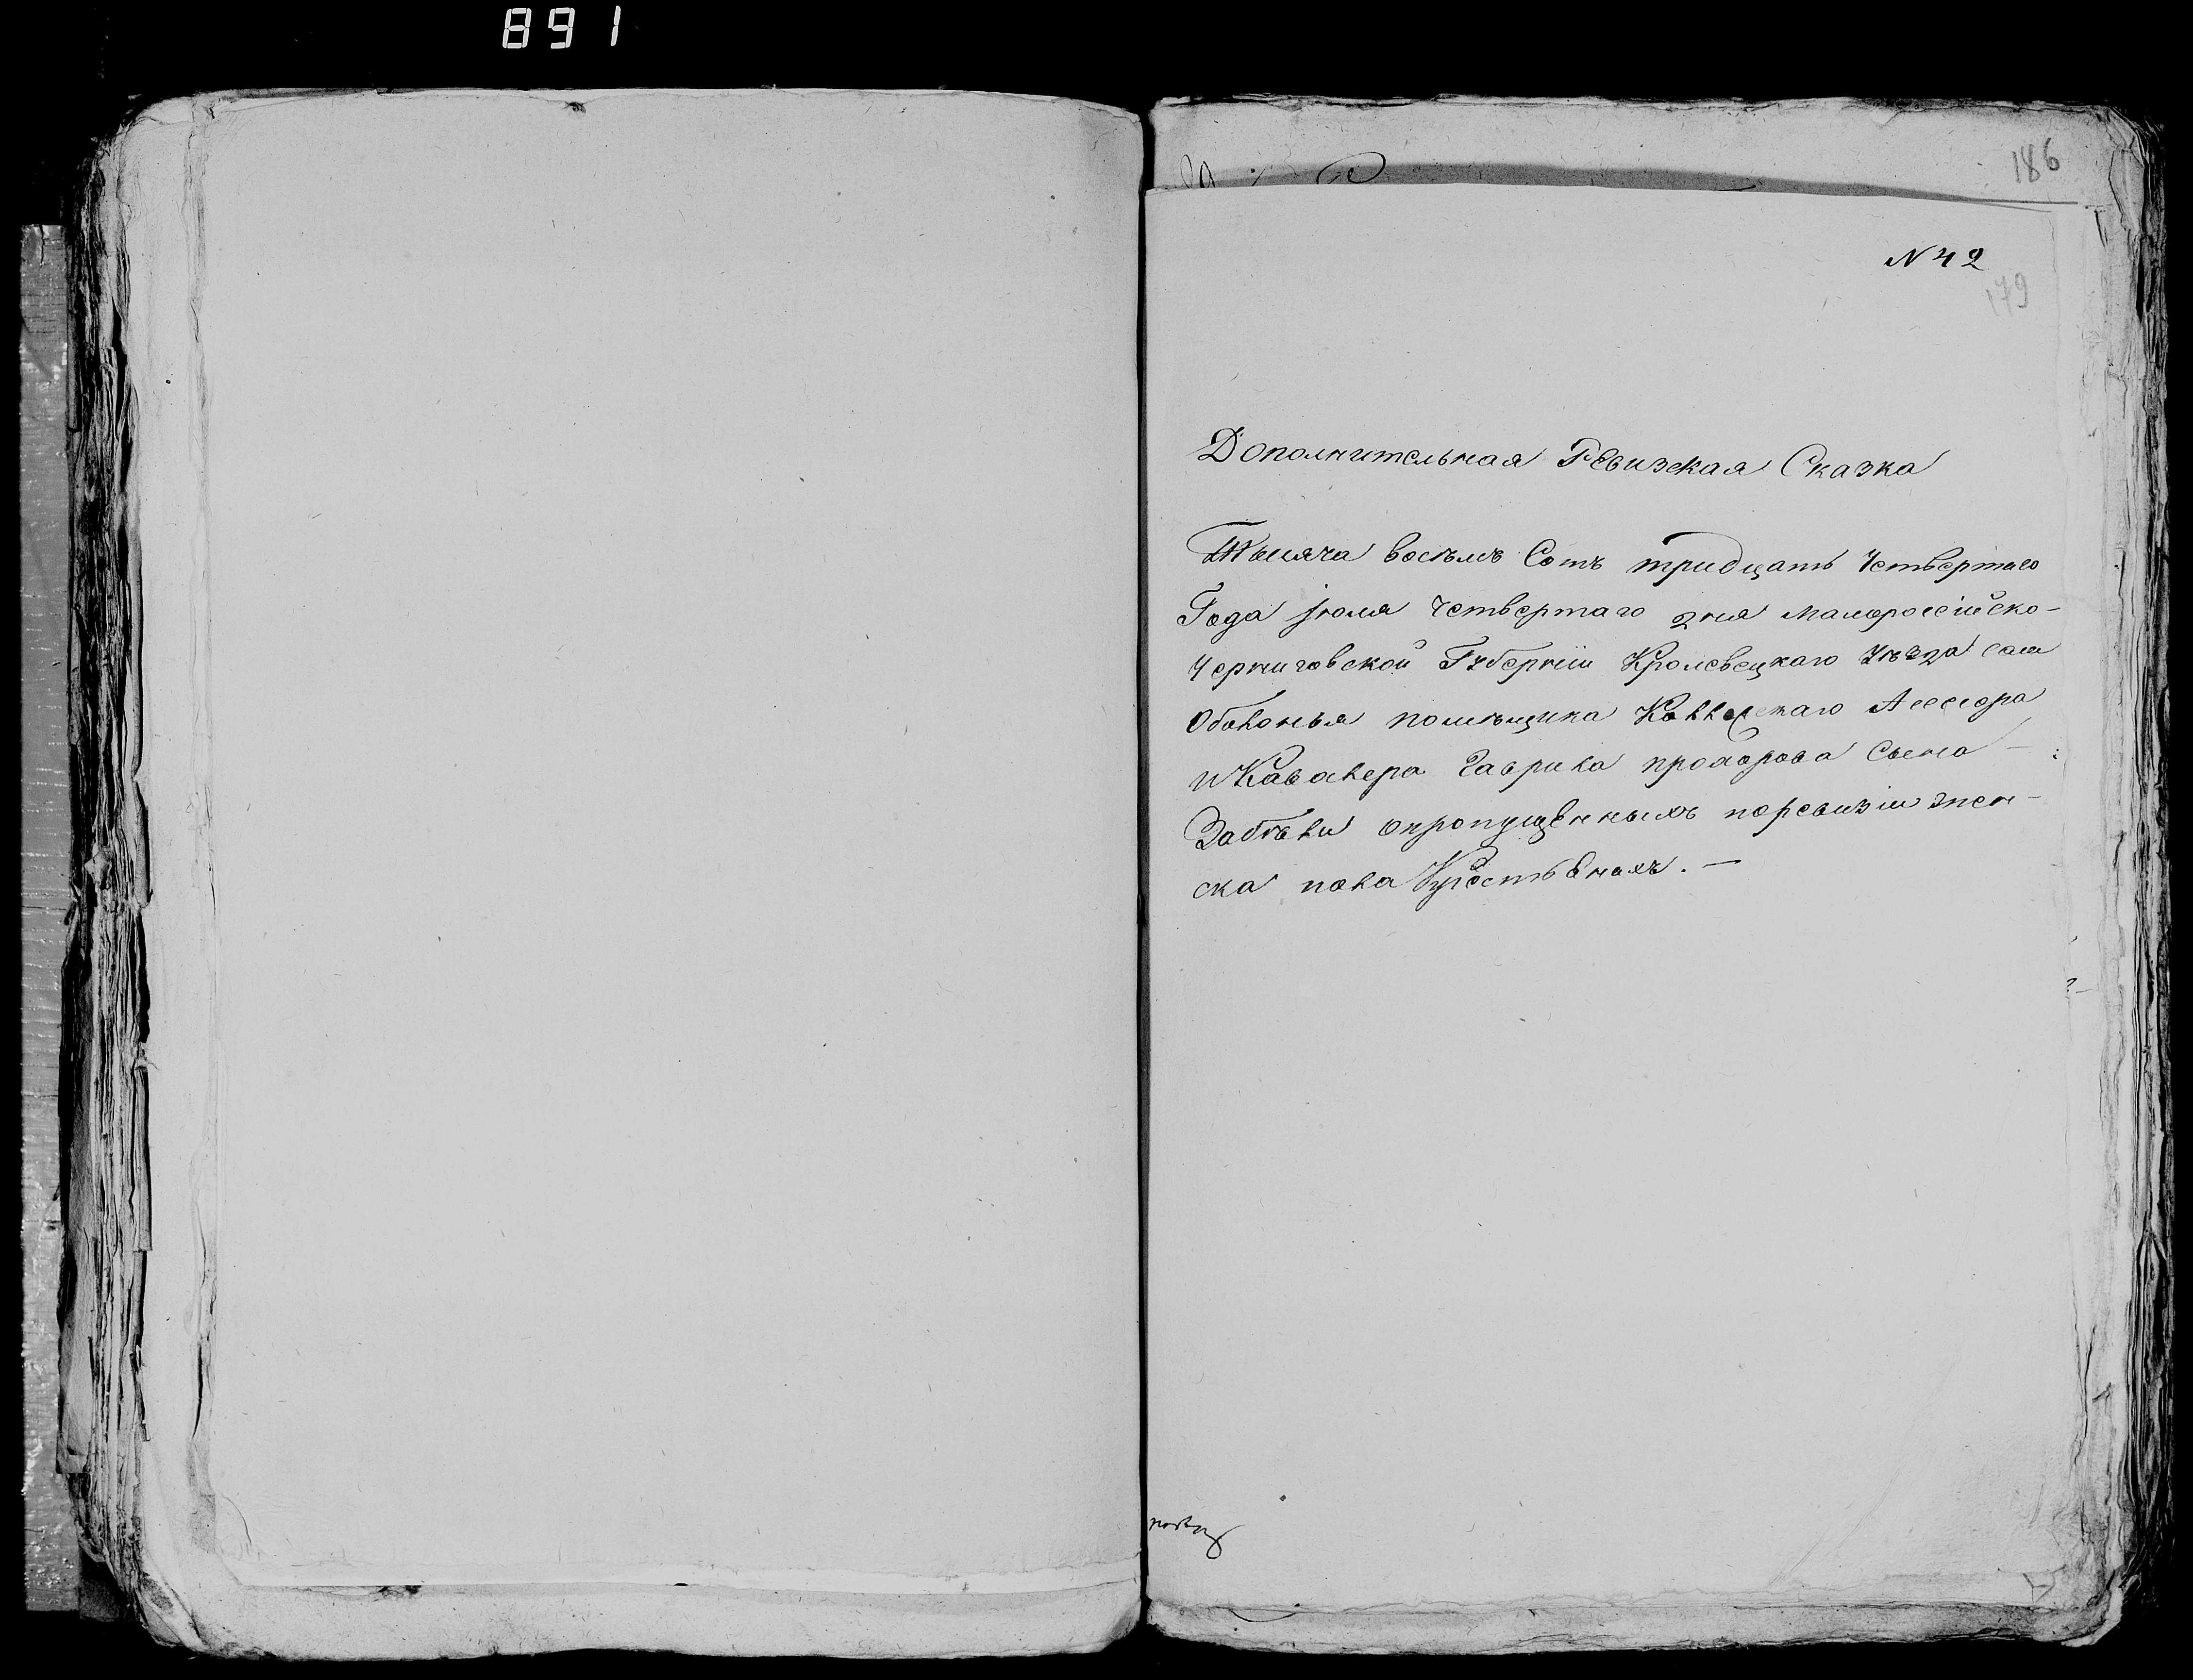 891
186
N 42
179
Дополнительная Ревизская Сказка
Тысяча восѣмъ Сотъ тридцать Четвертаго
Года июля Четвертаго дня Малороссійско-
Черниговской Губерніи Кролевецкаго Уѣзда села
Оболонья помѣщика Коллежскаго Асессора
и Кавалера Гаврила прохорова Сына -
Забѣлы опропущенныхъ поревизіи жен-
ска пола Крестьянахъ. -